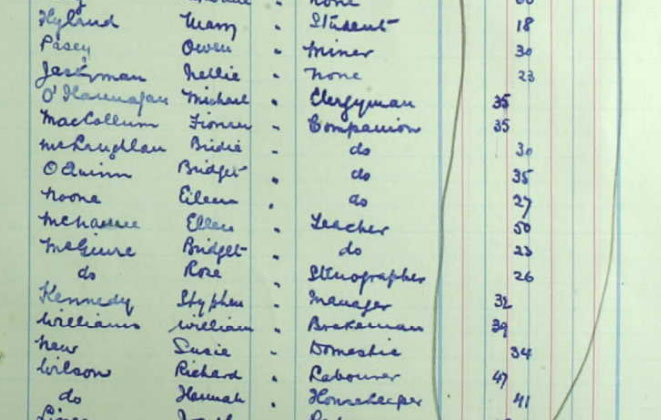 None
Mary " Student 18
Pasey Owen " Miner 30
Jackman Nellie " None 23
O'Hannagan Michael " Clergyman 35
MacCollum " Companion 35
McLaughlan Bridie " do 30
O'Quinn Bridget " do 35
Noone Eileen " do 27
Ellen " Teacher 50
McGuire Bridget " do 23
do Rose " Stenographer 26
Kennedy Stephen " Manager 32
Williams William " Brakeman 39
New Susie " Domestic 34
Wilson Richard " Labourer 47
do Hannah " Housekeeper 41